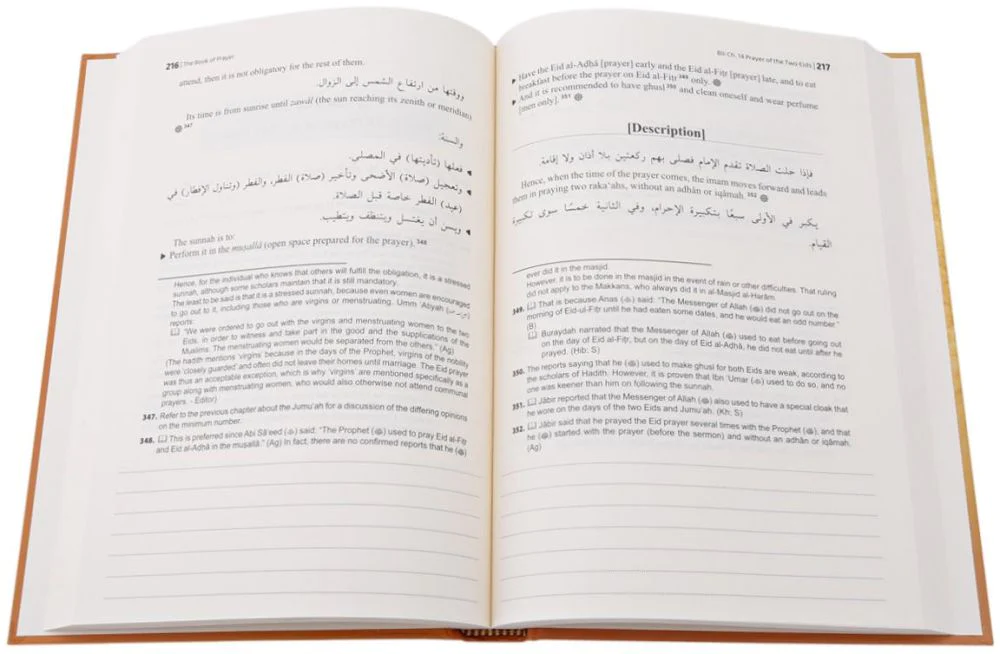 216 | The Book of Prayer
attend, then it is not obligatory for the rest of them.
ووقتها من ارتفاع الشمس إلى الزوال.
Its time is from sunrise until zawâl (the sun reaching its zenith or meridian)
347
والسنة:
◄ فعلها (تأديتها) في المصلى.
◄ وتعجيل (صلاة) الأضحى وتأخير (صلاة) الفطر، والفطر (وتناول الإفطار) في
(عيد) الفطر خاصة قبل الصلاة.
◄ ويسن أن يغتسل ويتنظف ويتطيب.
The sunnah is to:
► Perform it in the muṣallâ (open space prepared for the prayer). 348
Hence, for the individual who knows that others will fulfill the obligation, it is a stressed
sunnah, although some scholars maintain that it is still mandatory.
The least to be said is that it is a stressed sunnah, because even women are encouraged
to go out to it, including those who are virgins or menstruating. Umm 'Atiyah
reports:
"We were ordered to go out with the virgins and menstruating women to the two
Eids, in order to witness and take part in the good and the supplications of the
Muslims. The menstruating women would be separated from the others." (Ag)
(The hadith mentions 'virgins' because in the days of the Prophet, virgins of the nobility
were 'closely guarded' and often did not leave their homes until marriage. The Eid prayer
was thus an acceptable exception, which is why 'virgins' are mentioned specifically as a
group along with menstruating women, who would also otherwise not attend communal
prayers. - Editor)
347. Refer to the previous chapter about the Jumu'ah for a discussion of the differing opinions
on the minimum number.
348. This is preferred since Abi Sa'eed (ﷺ) said: "The Prophet (ﷺ) used to pray Eid al-Fiṭr
and Eid al-Aḍḥâ in the muṣallâ." (Ag) In fact, there are no confirmed reports that he (ﷺ)
BII-Ch. 16 Prayer of the Two Eids | 217
► Have the Eid al-Aḍḥâ [prayer] early and the Eid al-Fiṭr [prayer] late, and to eat
breakfast before the prayer on Eid al-Fiṭr 349 only.
► And it is recommended to have ghusl 350 and clean oneself and wear perfume
[men only]. 351
[Description]
فإذا حلت الصلاة تقدم الإمام فصلى بهم ركعتين بلا أذان ولا إقامة.
Hence, when the time of the prayer comes, the imam moves forward and leads
them in praying two raka'ahs, without an adhân or iqâmah. 352
يكبر في الأولى سبعًا بتكبيرة الإحرام، وفي الثانية خمسًا سوى تكبيرة
القيام.
ever did it in the masjid.
However, it is to be done in the masjid in the event of rain or other difficulties. That ruling
did not apply to the Makkans, who always did it in al-Masjid al-Harâm.
349. That is because Anas said: "The Messenger of Allah (ﷺ) did not go out on the
morning of Eid-ul-Fiṭr until he had eaten some dates, and he would eat an odd number."
(B)
Buraydah narrated that the Messenger of Allah (ﷺ) used to eat before going out
on the day of Eid al-Fiṭr, but on the day of Eid al-Aḍḥâ, he did not eat until after he
prayed. (Hib: S)
350. The reports saying that he (ﷺ) used to make ghusl for both Eids are weak, according to
the scholars of Hadith. However, it is proven that Ibn 'Umar used to do so, and no
one was keener than him on following the sunnah.
351. Jâbir reported that the Messenger of Allah (ﷺ) also used to have a special cloak that
he wore on the days of the two Eids and Jumu'ah. (Kh; S)
352. Jâbir said that he prayed the Eid prayer several times with the Prophet (ﷺ), and that
he (ﷺ) started with the prayer (before the sermon) and without an adhân or iqâmah.
(Ag)